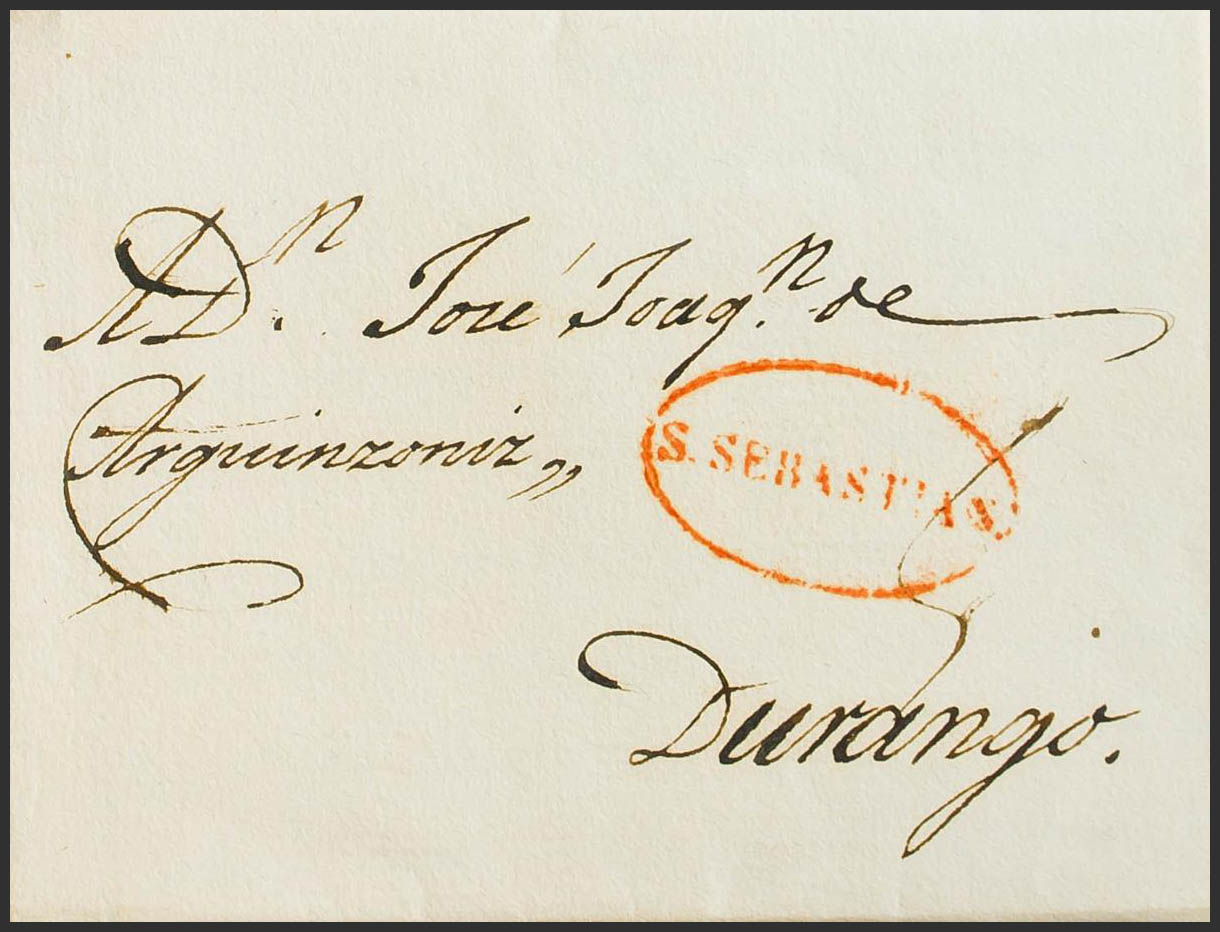 A Dⁿ. José Joaqⁿ. de
Arguinzoniz„
S. SEBASTIAN.
Durango.